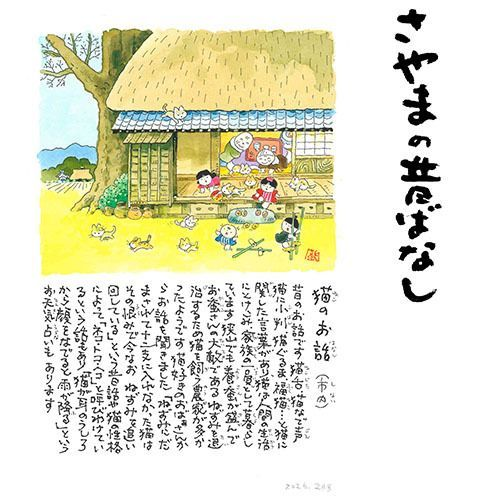 さやまの昔ばなし
猫のお話（市内）
昔のお話です 猫舌、猫なで声
猫に小判 猫ぐるま 福猫…と猫に
関した言葉があり猫は人間の生活
にとけこみ 家族の一員として暮らし
ています 狭山でも養蚕が盛んで
お蚕さんの大敵である ねずみを退
治するため猫を飼う農家が多か
ったようです 猫好きのおばあさんか
らお話を聞きました 「ねずみにだ
まされて十二支に入れなかった猫は
その恨みで今なおねずみを追い
回している」という昔話や猫の性格
によって、ネコ・トコ・ヘコと呼びわけてい
るいう話もあり 「猫が耳のうしろ
から顔をなでると雨が降る」という
お天気占いもあります